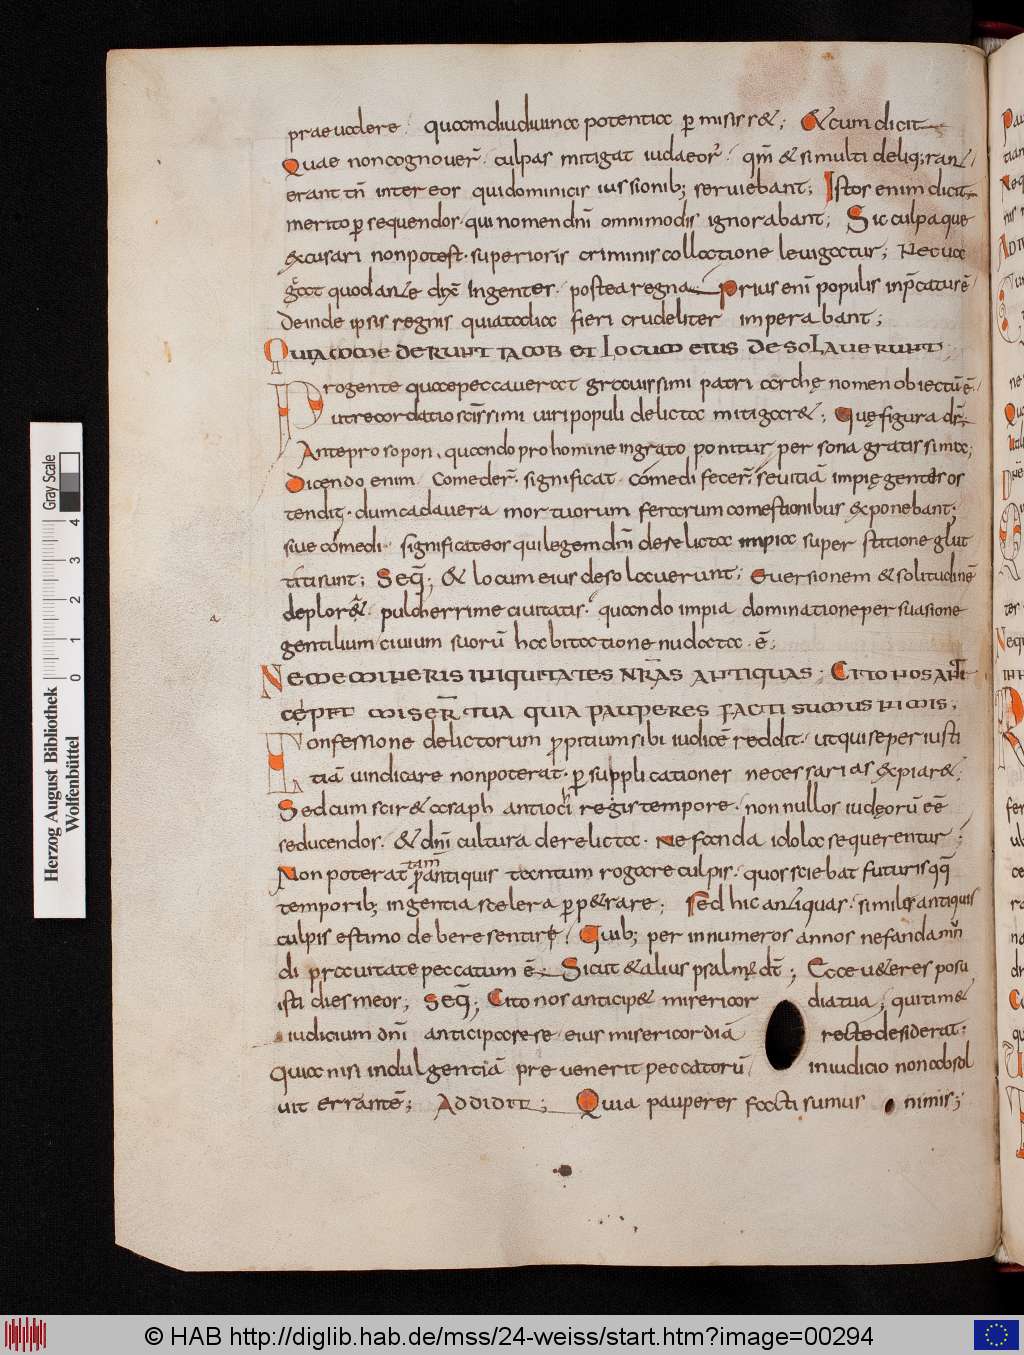 praeualere · quam diu diuina potentia p̱ misisr&; & cum dicit
Quae non cognouer̄ · culpas mitigat iudaeoꝝ · qm̄ & si multi deliq;rant
erant tn̄ inter eos qui dominicis iussionib; seruiebant; Istos enim dicit
merito p̱sequendos · qui nomen dn̄i omnimodis ignorabant; Sic culpa que
excusari non potest · superioris criminis collactione leuigatur; Nec uac
quod ante dix̄ Ingentes · postea regna Prius enī populis inp̄catus ē
deinde ipsis regnis quia talia fieri crudeliter imperabant;
QUIA COMEDERUNT IACOB ET LOCUM EIUS DESOLAUERUNT;
Progente quae peccauerat grauissimi patri archę nomen obiectū ē ·
ut recordatio scīssimi uiri populi delicta mitigar&; Quę figura dr̄
Ante prosopon · quando pro homine ingrato ponitur persona gratissima;
Dicendo enim Comeder̄ · significat · comedi fecer̄ · seuitiā impię gentis os
tendit · dum cadauera mortuorum ferarum comestionibus exponebant;
siue comedi · significat eos qui legem dn̄i derelicta impia superstitione glut
titi sunt; Seq̄; & locum eius desolauerunt; Euersionem & solitudinē
deplor& · pulcherrime ciuitatis · quando impia dominatione persuasione
gentilium ciuium suorū habitatione nudata · ē;
NE MEMINERIS INIQUITATES NR̄AS ANTIQUAS; CITO NOS ANTI
CEPET MISERĪ TUA QUIA PAUPERES FACTI SUMUS NIMIS;
Confessione delictorum p̱pitium sibi iudicē reddit · ut qui se per iusti
tiā uindicare non poterat · p̱ supplicationes necessarias expiar&;
Sed cum scir& asaph antiochi regis tempore · non nullos iudęorū eē
seducendos · & dn̄i cultura derelicta · Nefanda idola sequerentur;
tam̄
Non poterat p̱ antiquis tantum rogare culpis · quos sciebat futuris qq̄
temporib; ingentia scelera p̱p&rare; Sed hic antiquas · similis antiquis
culpis estimo debere sentire · Quib; per innumeros annos nefandam
di prauitate peccatum ē; Sicut & alius psalmę dt̄; Ecce u&eres posu
isti dies meos; Seq̄; Cito nos anticip& misericor diatua; qui tim&
iudicium dn̄i anticipasse se eius misericordiā recte desiderat ·
quia nisi indulgentiā preuenerit peccatorū in iudicio non absol
uit errantē; ADDIDIT; Quia pauperes facti sumus nimis;
Gray Scale
4
3
2
1
0
Herzog August Bibliothek
Wolfenbüttel
© HAB http://diglib.hab.de/mss/24-weiss/start.htm?image=00294